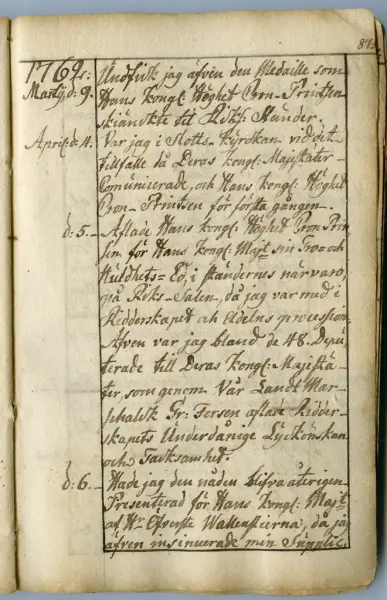 87.
1762:
Martij d: 9.
Undfick jag äfven den Medaille som
Hans Kongl: Höghet Cron-Printsen
skiänckte til Riks: Ständer.
April: d: 4.
Var jag i Slotts-Kyrckan vid det
tillfälle då Deras Kongl: Majestäter
Comunicerade, och Hans Kongl: Höghet
Cron-Printsen för första gången.
d: 5.
Aflade Hans Kongl: Höghet Cron Prin
sen för Hans Kongl: Majt sin Tro= och
Huldhets= Ed, i ständernes närvaro,
på Riks-Salen, då jag var med i
Ridderskapet och Adelns procession.
Äfven var jag bland de 48. Depu
terade till Deras Kongl: Majestä-
ter, som genom Vår Landt Mar-
schalck Gr: Fersen aflade Ridder-
skapets Underdånige Lyckönskan
och Tacksamhet.
d: 6.
Hade jag den nåden blifva återigen
Presenterad för Hans Kongl: Majt
af Hr Öfverste Wallenstierna, då jag
äfven insinuerade min Supplic.